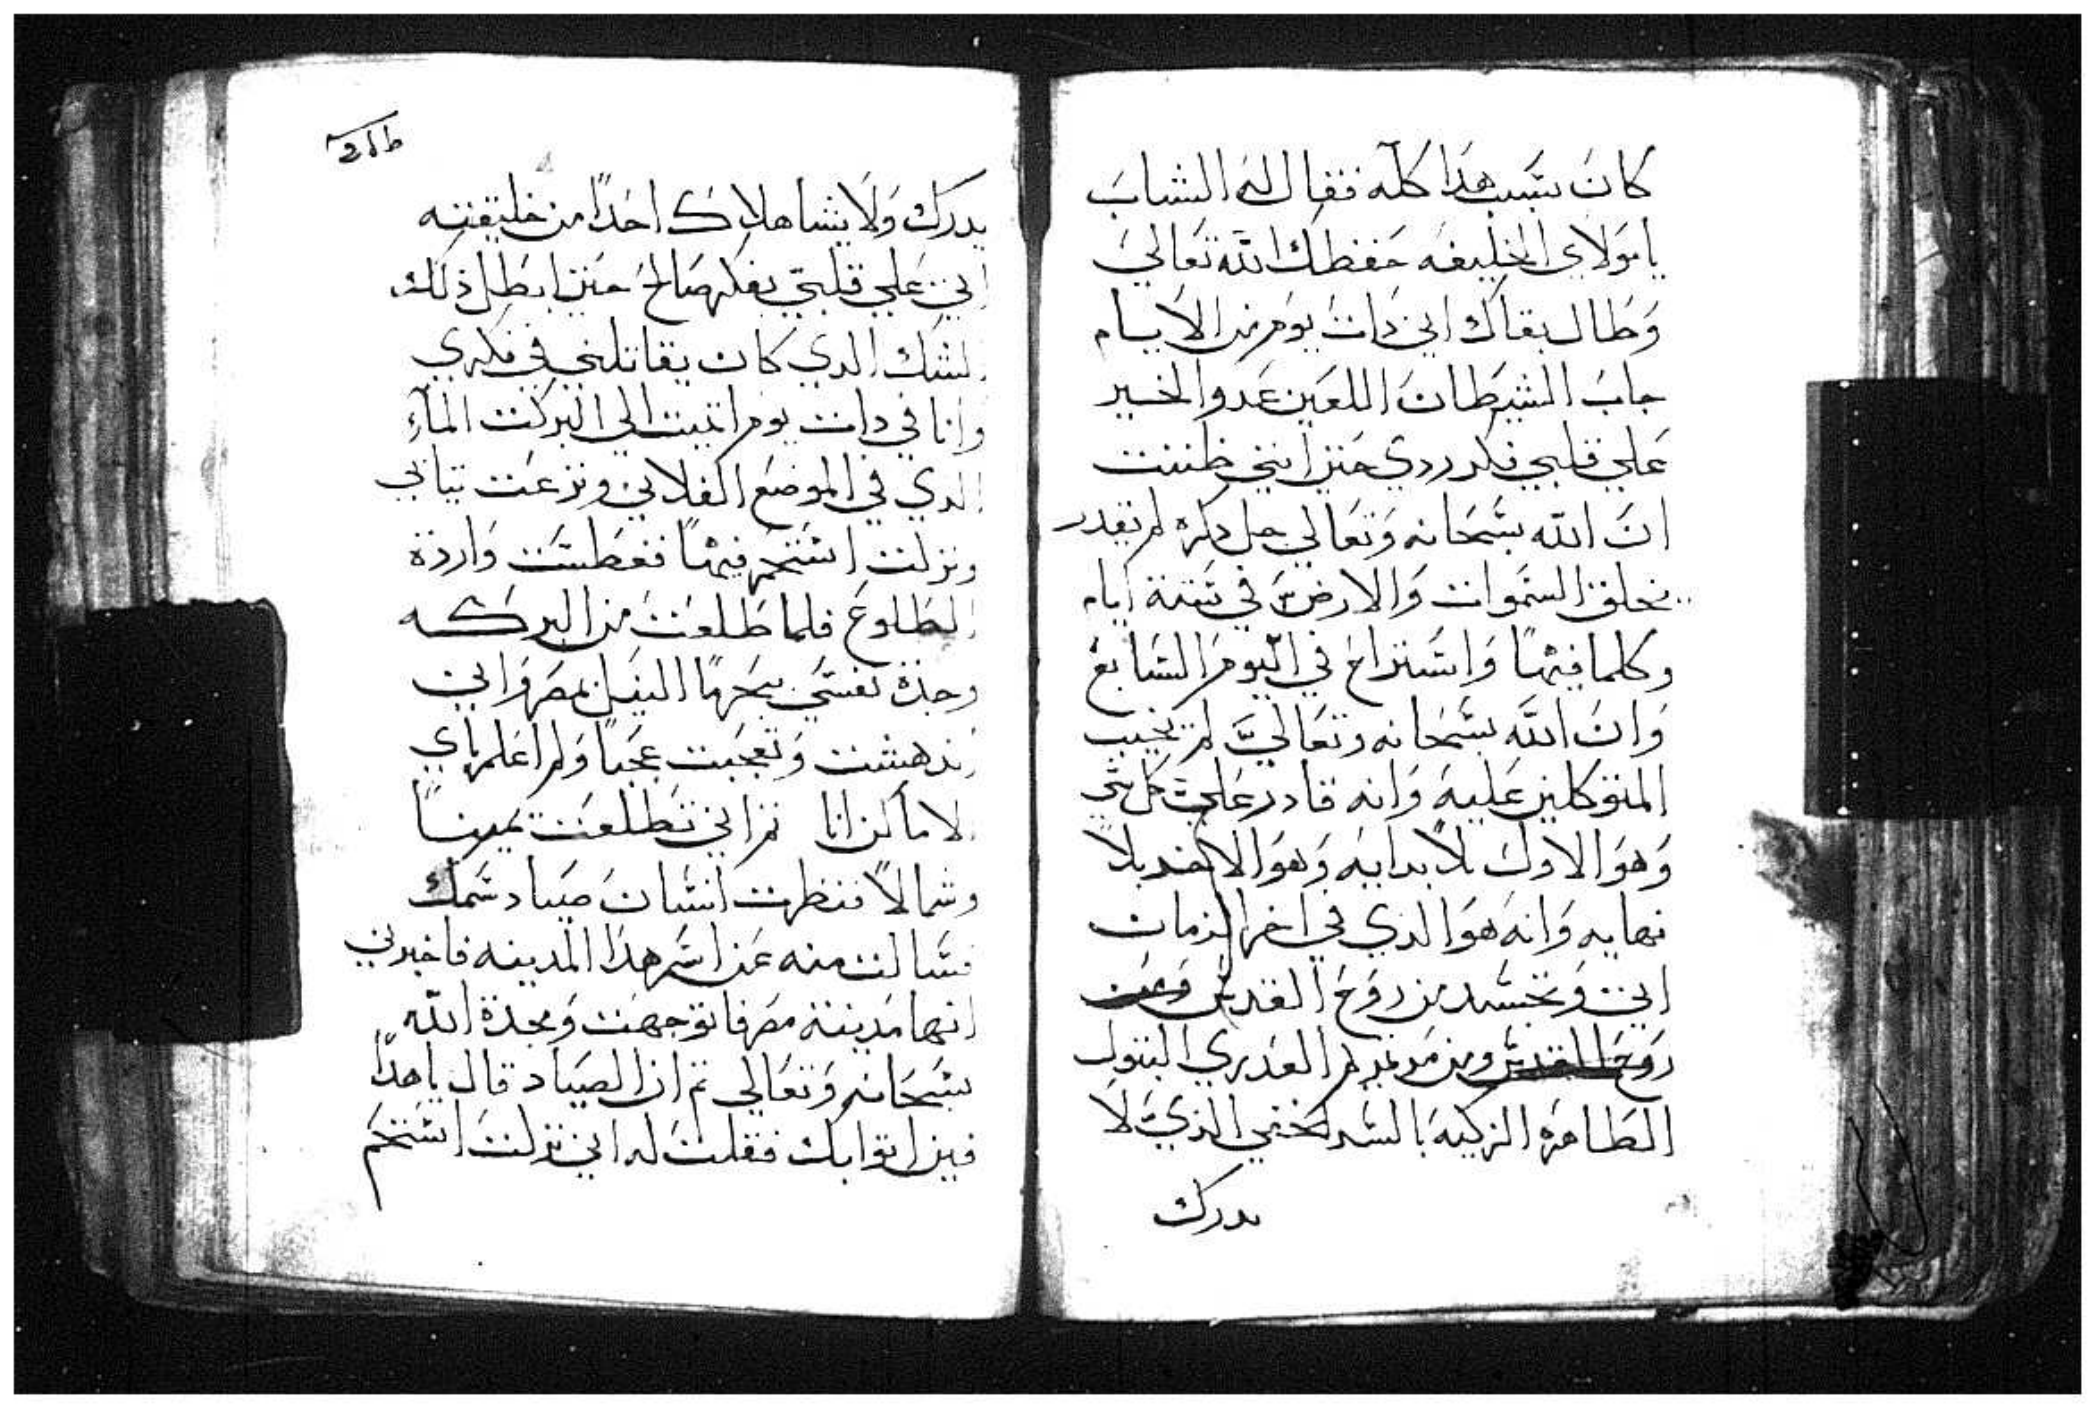 كان بسبب هدا كله فقال له الشاب
يا مولاي الخليفه حفظك الله تعالي
وطال بقاك اني دات يوم من الايام
جاب الشيطان اللعين عدوا الخير
علي قلبي فكر ردي حتي انني ظننت
ان الله سبحانه وتعالي جل دكره لم يقدر
يخلق السموات والارض في ستة ايام
وكلما فيها واستراح في اليوم السابع
وان الله سبحانه وتعالي لم يخيب
المتوكلين عليه وانه قادر علي كل شي
وهو الاول بلا بدايه وهو الاخر بلا
نهايه وانه هو الدي في اخر الزمان
اتي وتجسد من روح القدس ومن
روح القدس ومن مريم العدري البتول
الطاهره الزكيه بالسر الخفي الذي لا
يدرك
يدرك ولا يشا هلاك احدا من خليقته
اتي علي قلبي بفكر صالح حتي ابطل ذلك
الشك الدي كان يقاتلني في فكري
وانا في دات يوم اتيت الي البركت الماء
الدي في الموضع الفلاني ونزعت تيابي
ونزلت استحم فيها فغطست واردة
الطلوع فلما طلعت من البركه
وجدة نفسي ببحر النيل بمصر واني
اندهشت وتعجبت عجبا ولم اعلم باي
الاماكن انا تم اني تطلعت يمينا
وشمالا فنظرت انسان صياد سمك
فسالت منه عن اسم هدا المدينه فاخبرني
انها مدينة مصر فاتوجهت ومجدة الله
سبحانه وتعالي تم ان الصياد قال يا هدا
فين اتوابك فقلت له اني نزلت استحم